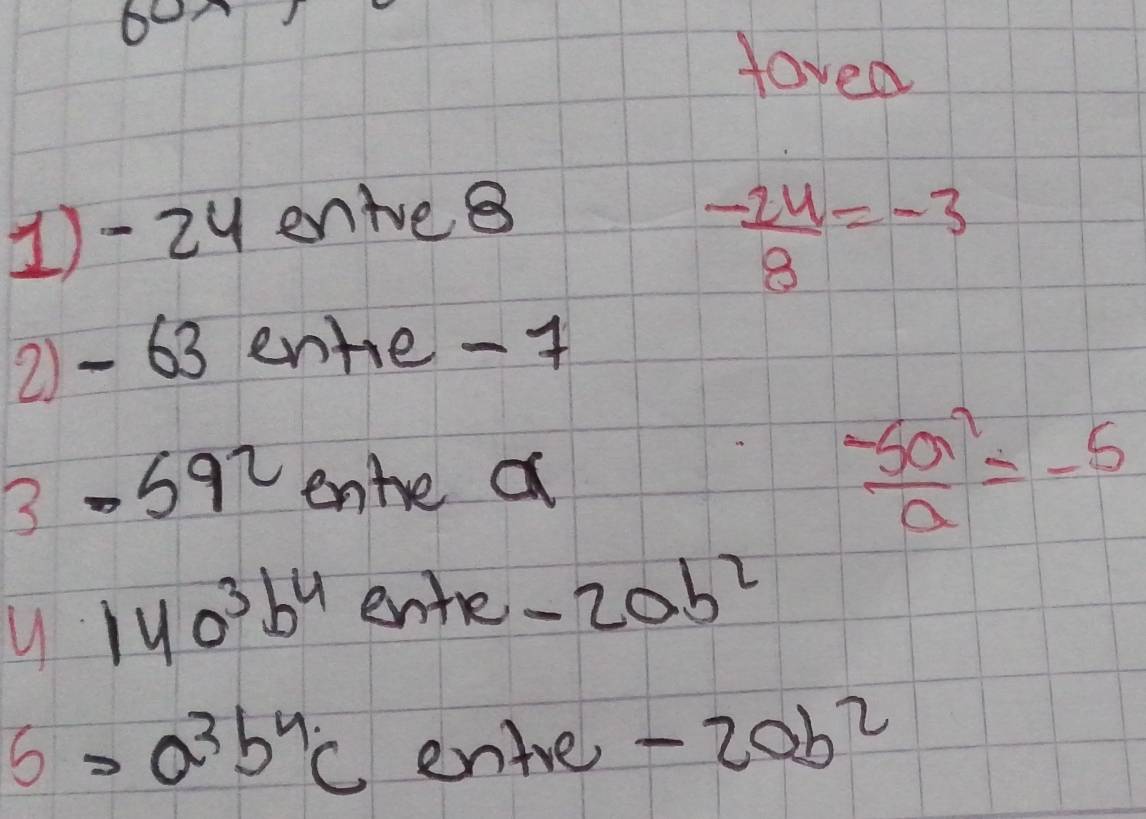 tarea
1) - 24 entre 8 -24/8 = -3
2) - 63 entre - 7
3 - 5a² entre a -5a²/a = -5
4 14a³b⁴ entre - 2ab²
5 - a³b⁴c entre - 2ab²